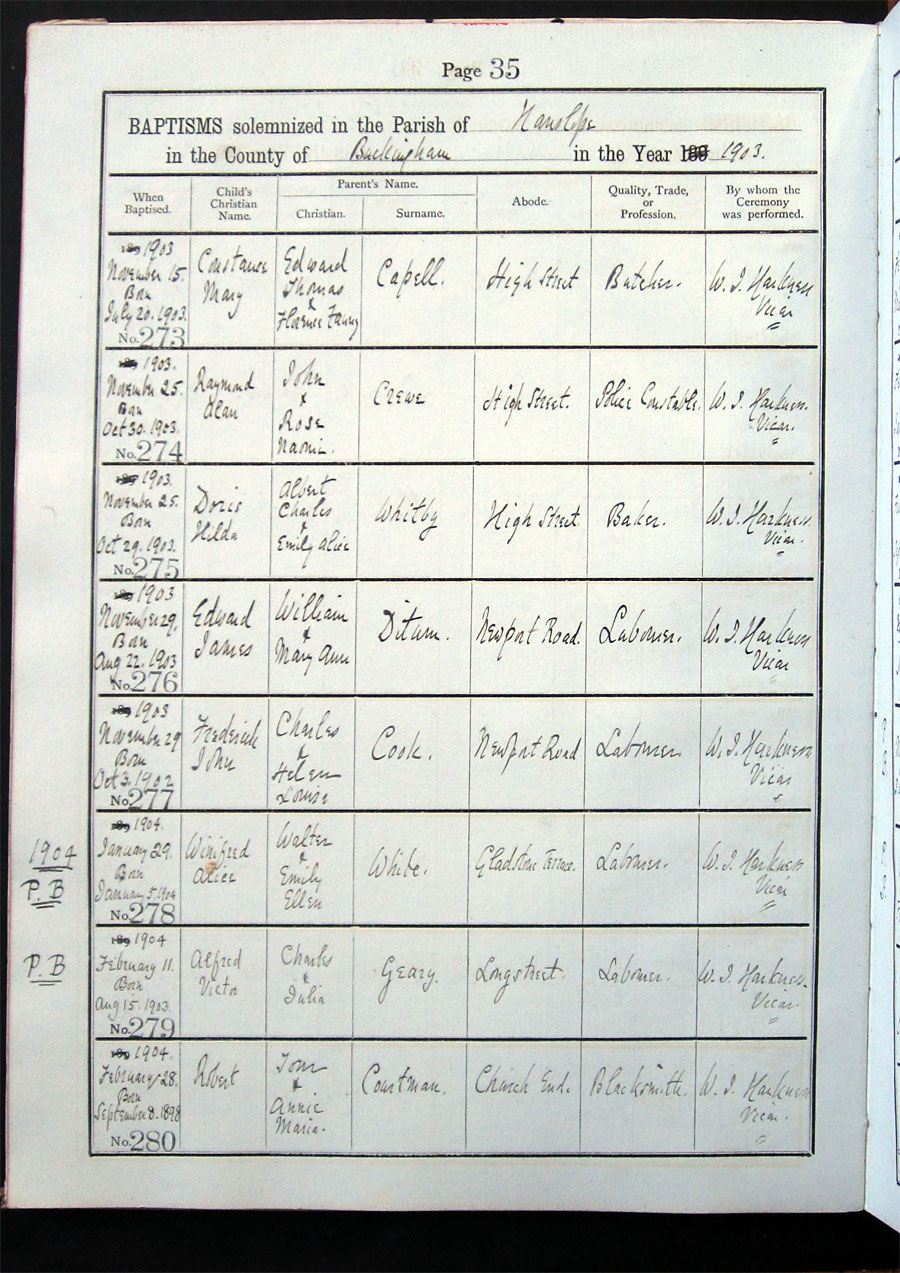 Page 35
BAPTISMS solemnized in the Parish of Hanslope
in the County of Buckingham in the Year 189 1903.
When Baptised.
Child's Christian Name.
Parent's Name.
Christian.
Surname.
Abode.
Quality, Trade, or Profession.
By whom the Ceremony was performed.
189 1903
November 15.
Born
July 20. 1903.
No. 273
Constance
Mary
Edward
Thomas
&
Florence Fanny
Capell.
High Street
Butcher.
W. J. Harkness
Vicar
189 1903.
November 25.
Born
Oct 30. 1903.
No. 274
Raymond
Alan
John
&
Rose
Naomi.
Crewe
High Street.
Police Constable.
W. J. Harkness.
Vicar.
189 1903.
November 25.
Born
Oct 29. 1903.
No. 275
Doris
Hilda
Albert
Charles
&
Emily Alice
Whitby
High Street
Baker.
W. J. Harkness.
Vicar.
189 1903
November 29.
Born
Aug 22. 1903
No. 276
Edward
James
William
&
Mary Ann
Ditum.
Newport Road.
Labourer.
W. J. Harkness
Vicar
189 1903
November 29
Born
Oct 3. 1902
No. 277
Frederick
John
Charles
&
Helen
Louise
Cook.
Newport Road
Labourer.
W. J. Harkness
Vicar
1904
P. B
189 1904.
January 29.
Born
January 5. 1904
No. 278
Winifred
Alice
Walter
&
Emily
Ellen
White.
Gladstone Terrace.
Labourer.
W. J. Harkness
Vicar
P. B
189 1904
February 11.
Born
Aug 15. 1903.
No. 279
Alfred
Victor
Charles
&
Julia
Geary.
Longstreet.
Labourer.
W. J. Harkness.
Vicar.
189 1904.
February 28.
Born
September 8. 1898
No. 280
Robert
Tom
&
Annie
Maria.
Courtman.
Church End.
Blacksmith.
W. J. Harkness
Vicar.